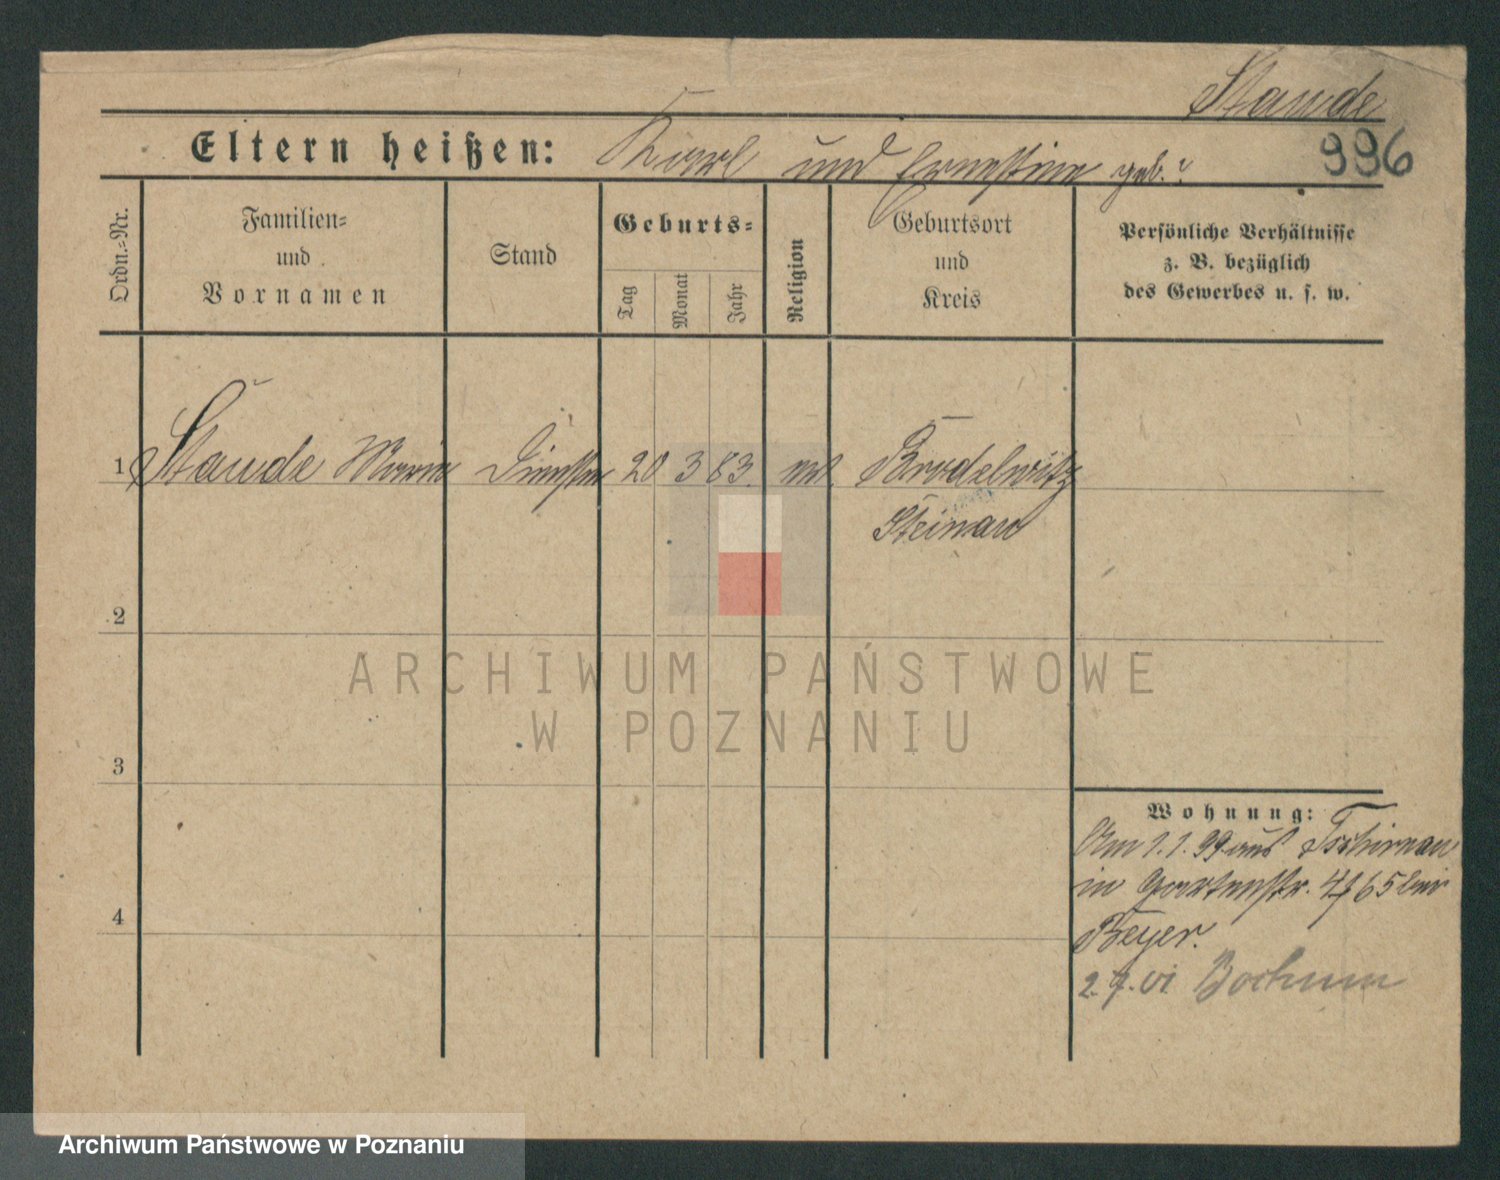 Staude
Eltern heißen: Karl und Ernestine geb. ?
996
Ordn.-Nr.
Familien-
und
Vornamen
Stand
Geburts-
Tag
Monat
Jahr
Religion
Geburtsort
und
Kreis
Persönliche Verhältnisse
z. B. bezüglich
des Gewerbes u. s. w.
1 Staude Maria 20 3 83. Brodelwitz
Steinau
2
3
4
ARCHIWUM PAŃSTWOWE
W POZNANIU
Wohnung:
Am 1.1.99 aus Tschirnau
in Gartenstr. bei
Beyer.
Bochum
Archiwum Państwowe w Poznaniu